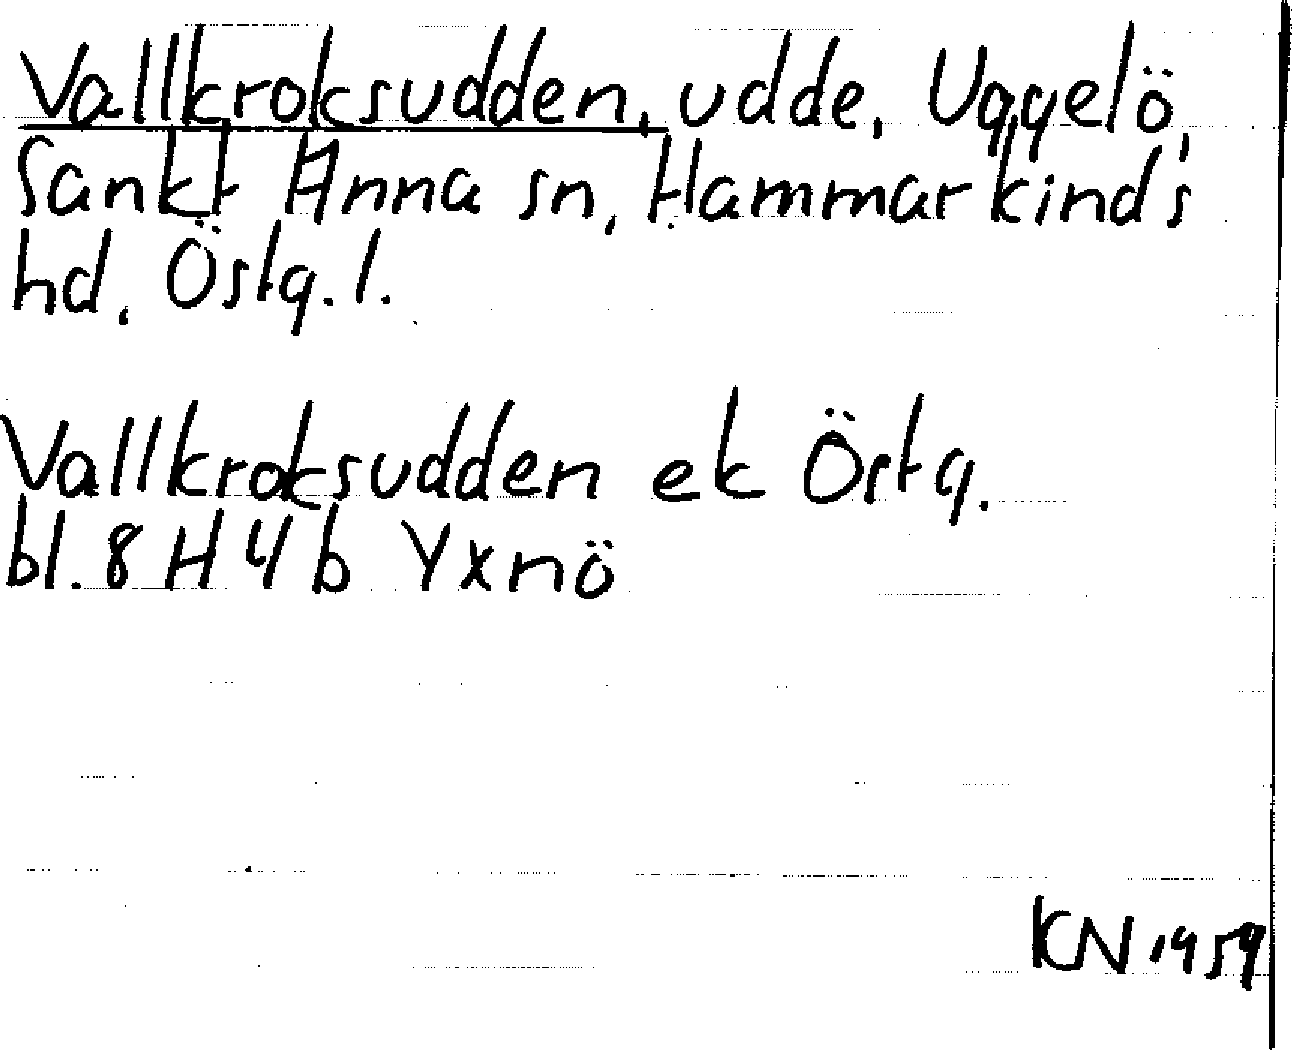 Vallkroksudden, udde, Uggelö,
Sankt Anna sn, Hammarkinds
hd, Östg. l.
Vallkroksudden ek Östg.
bl. 8 H 4 b Yxnö
KN 1959